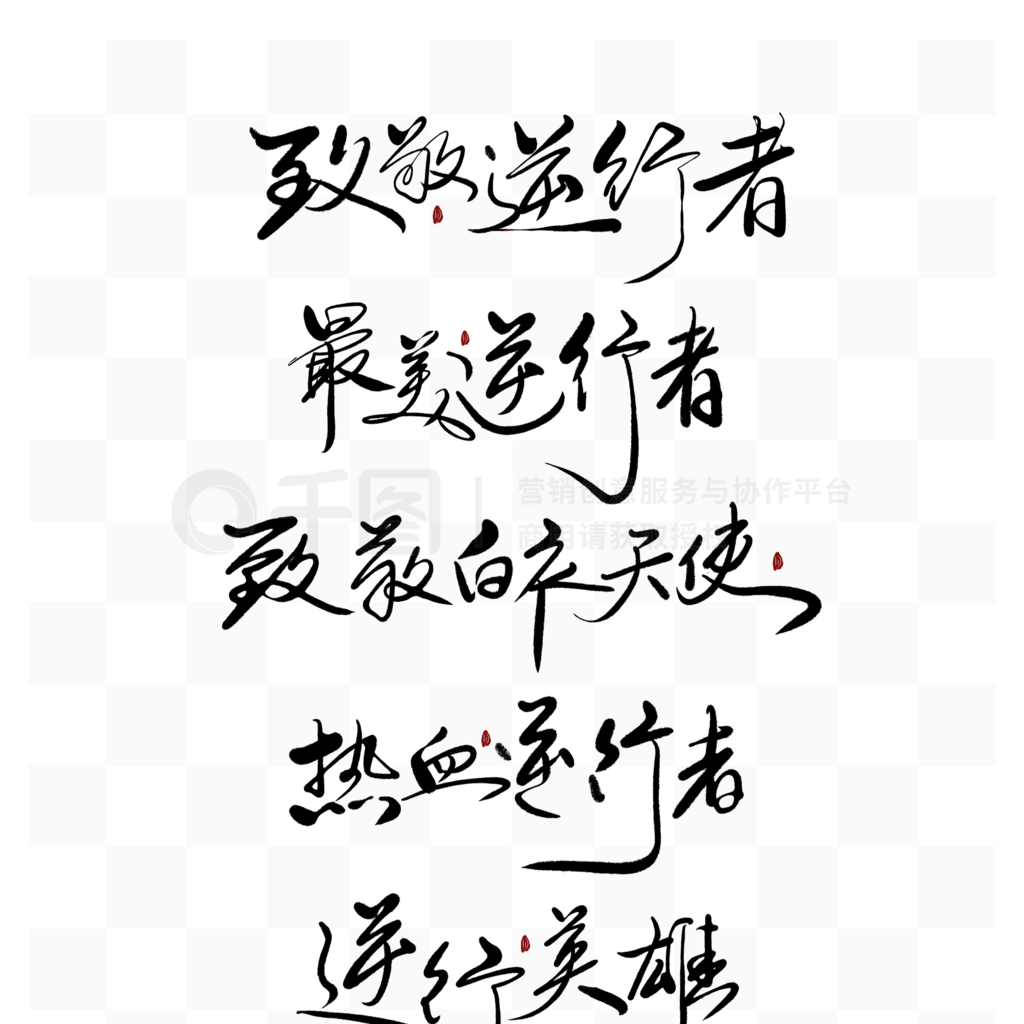 致敬逆行者
最美逆行者
千图 营销创意服务与协作平台
商用请获取授权
致敬白衣天使
热血逆行者
逆行英雄